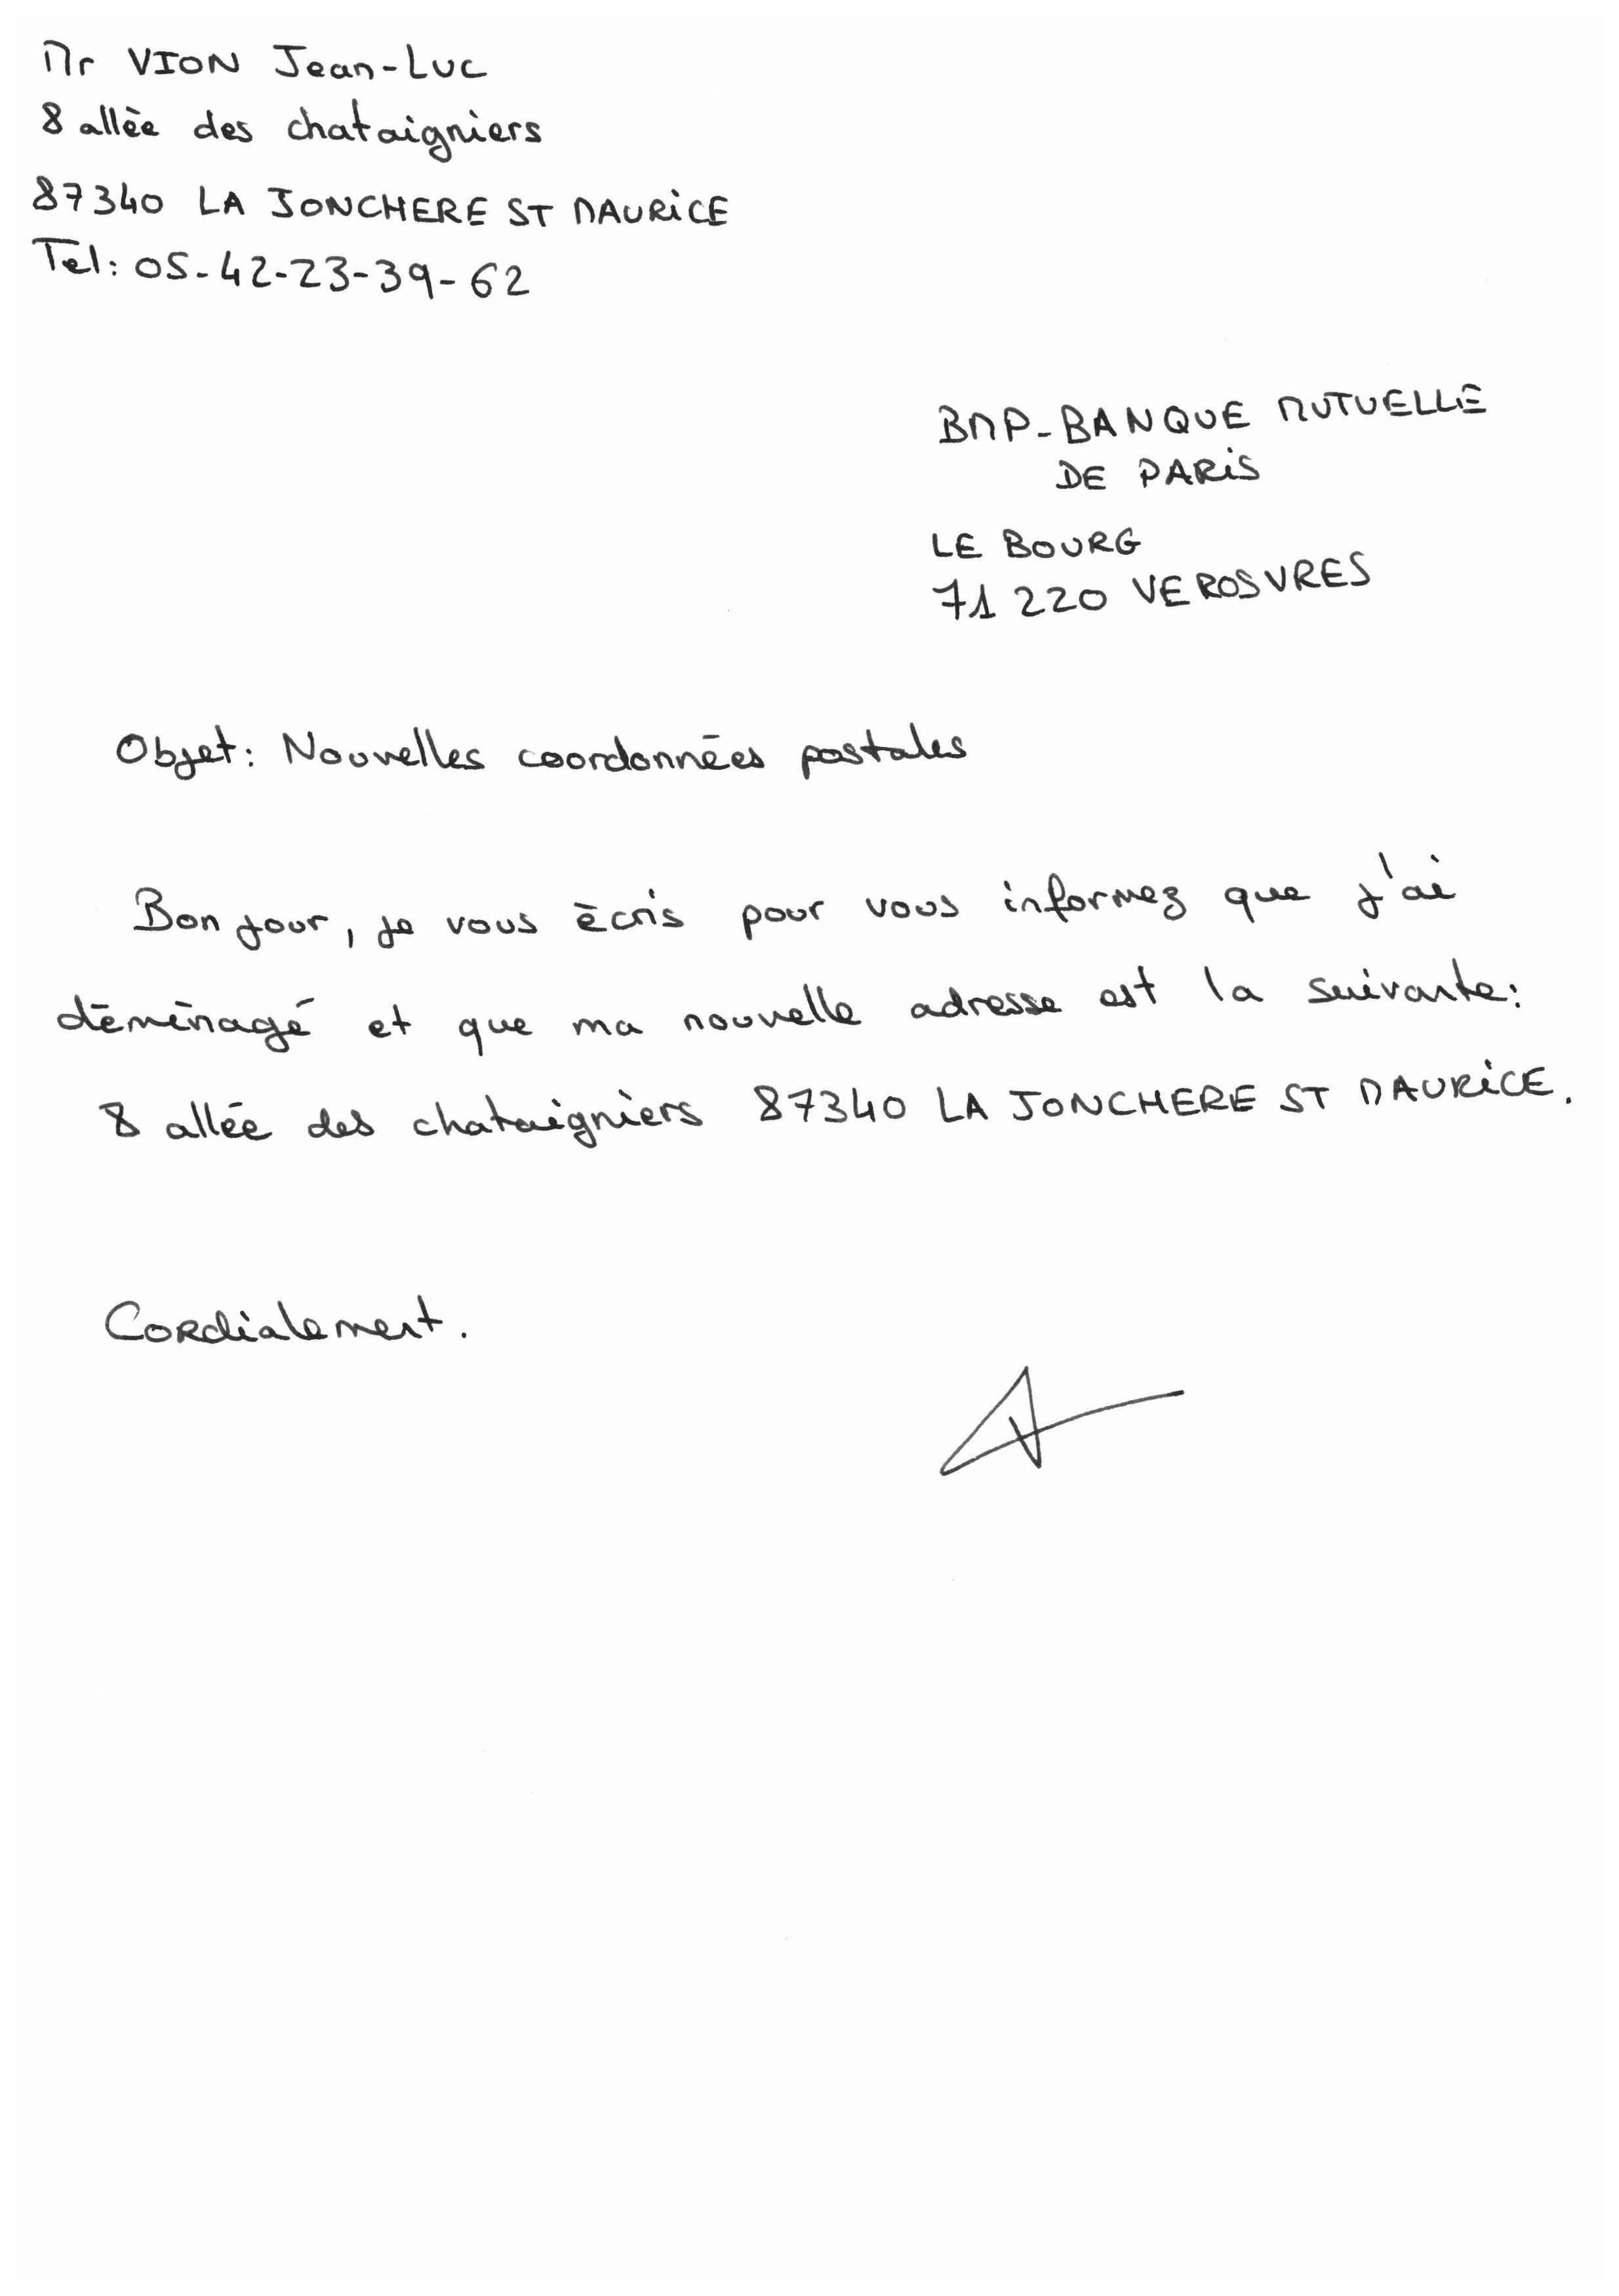 Mr VION Jean-Luc
8 allée des chataigniers
87340 LA JONCHERE ST MAURiCE
Tel: 05-42-23-39-62
BMP-BANQUE MUTUELLE
DE PARiS
LE BOURG
71220 VEROSVRES
Objet: Nouvelles coordonnées postales
Bonjour, je vous écris pour vous informez que j'ai
déménagé et que ma nouvelle adresse est la suivante:
8 allée des chataigniers 87340 LA JONCHERE ST MAURiCE.
Cordialement.